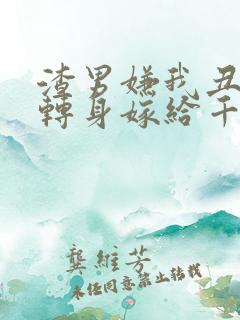 渣男嫌我丑
轉身嫁給千
龔維芳
未經同意禁止轉載